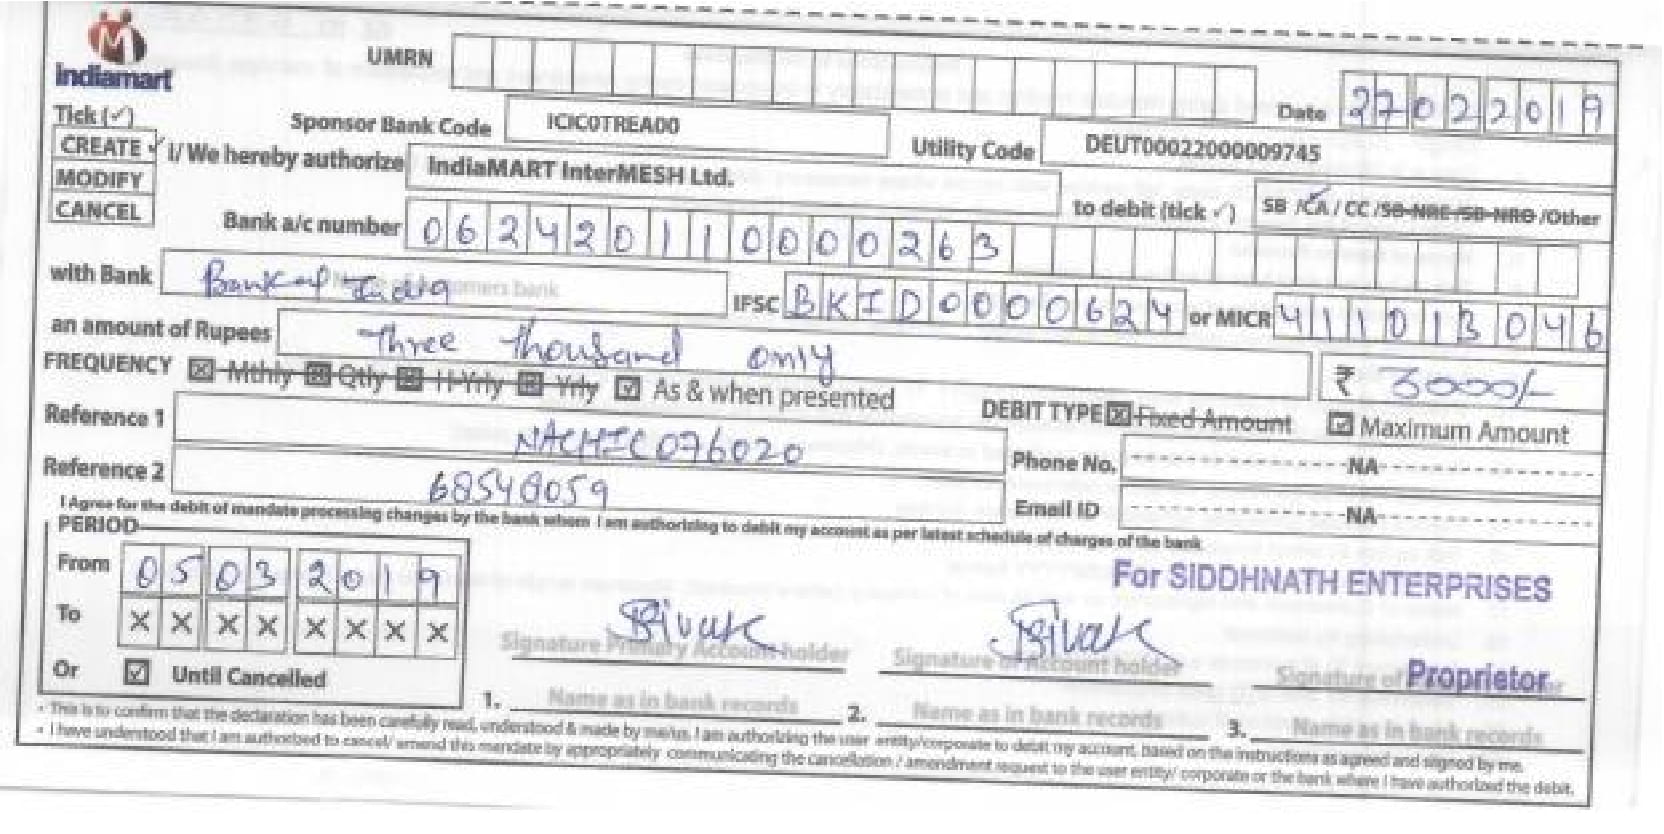 indiamart
UMRN
Date 27022019
Tick (✓)
Sponsor Bank Code ICIC0TREA00 Utility Code DEUT00022000009745
CREATE ✓ I/ We hereby authorize IndiaMART InterMESH Ltd. to debit (tick ✓) SB /CA / CC /SB-NRE /SB-NRO /Other
MODIFY
CANCEL
Bank a/c number 062420110000263
with Bank Bank of India customers bank IFSC BKID0000624 or MICR 411013046
an amount of Rupees Three thousand only ₹ 3000/-
FREQUENCY Mthly Qtly H-Yrly Yrly As & when presented DEBIT TYPE Fixed Amount Maximum Amount
Reference 1 NACHIC076020 Phone No. NA
Reference 2 68548059 Email ID NA
I Agree for the debit of mandate processing charges by the bank whom I am authorizing to debit my account as per latest schedule of charges of the bank
PERIOD
From 05032019
To XXXXXXXX
Or Until Cancelled
For SIDDHNATH ENTERPRISES
Signature Primary Account holder Signature of Account holder Signature of Proprietor
1. Name as in bank records 2. Name as in bank records 3. Name as in bank records
• This is to confirm that the declaration has been carefully read, understood & made by me/us. I am authorizing the user entity/corporate to debit my account, based on the instructions as agreed and signed by me.
• I have understood that I am authorised to cancel/ amend this mandate by appropriately communicating the cancellation / amendment request to the user entity/ corporate or the bank where I have authorized the debit.